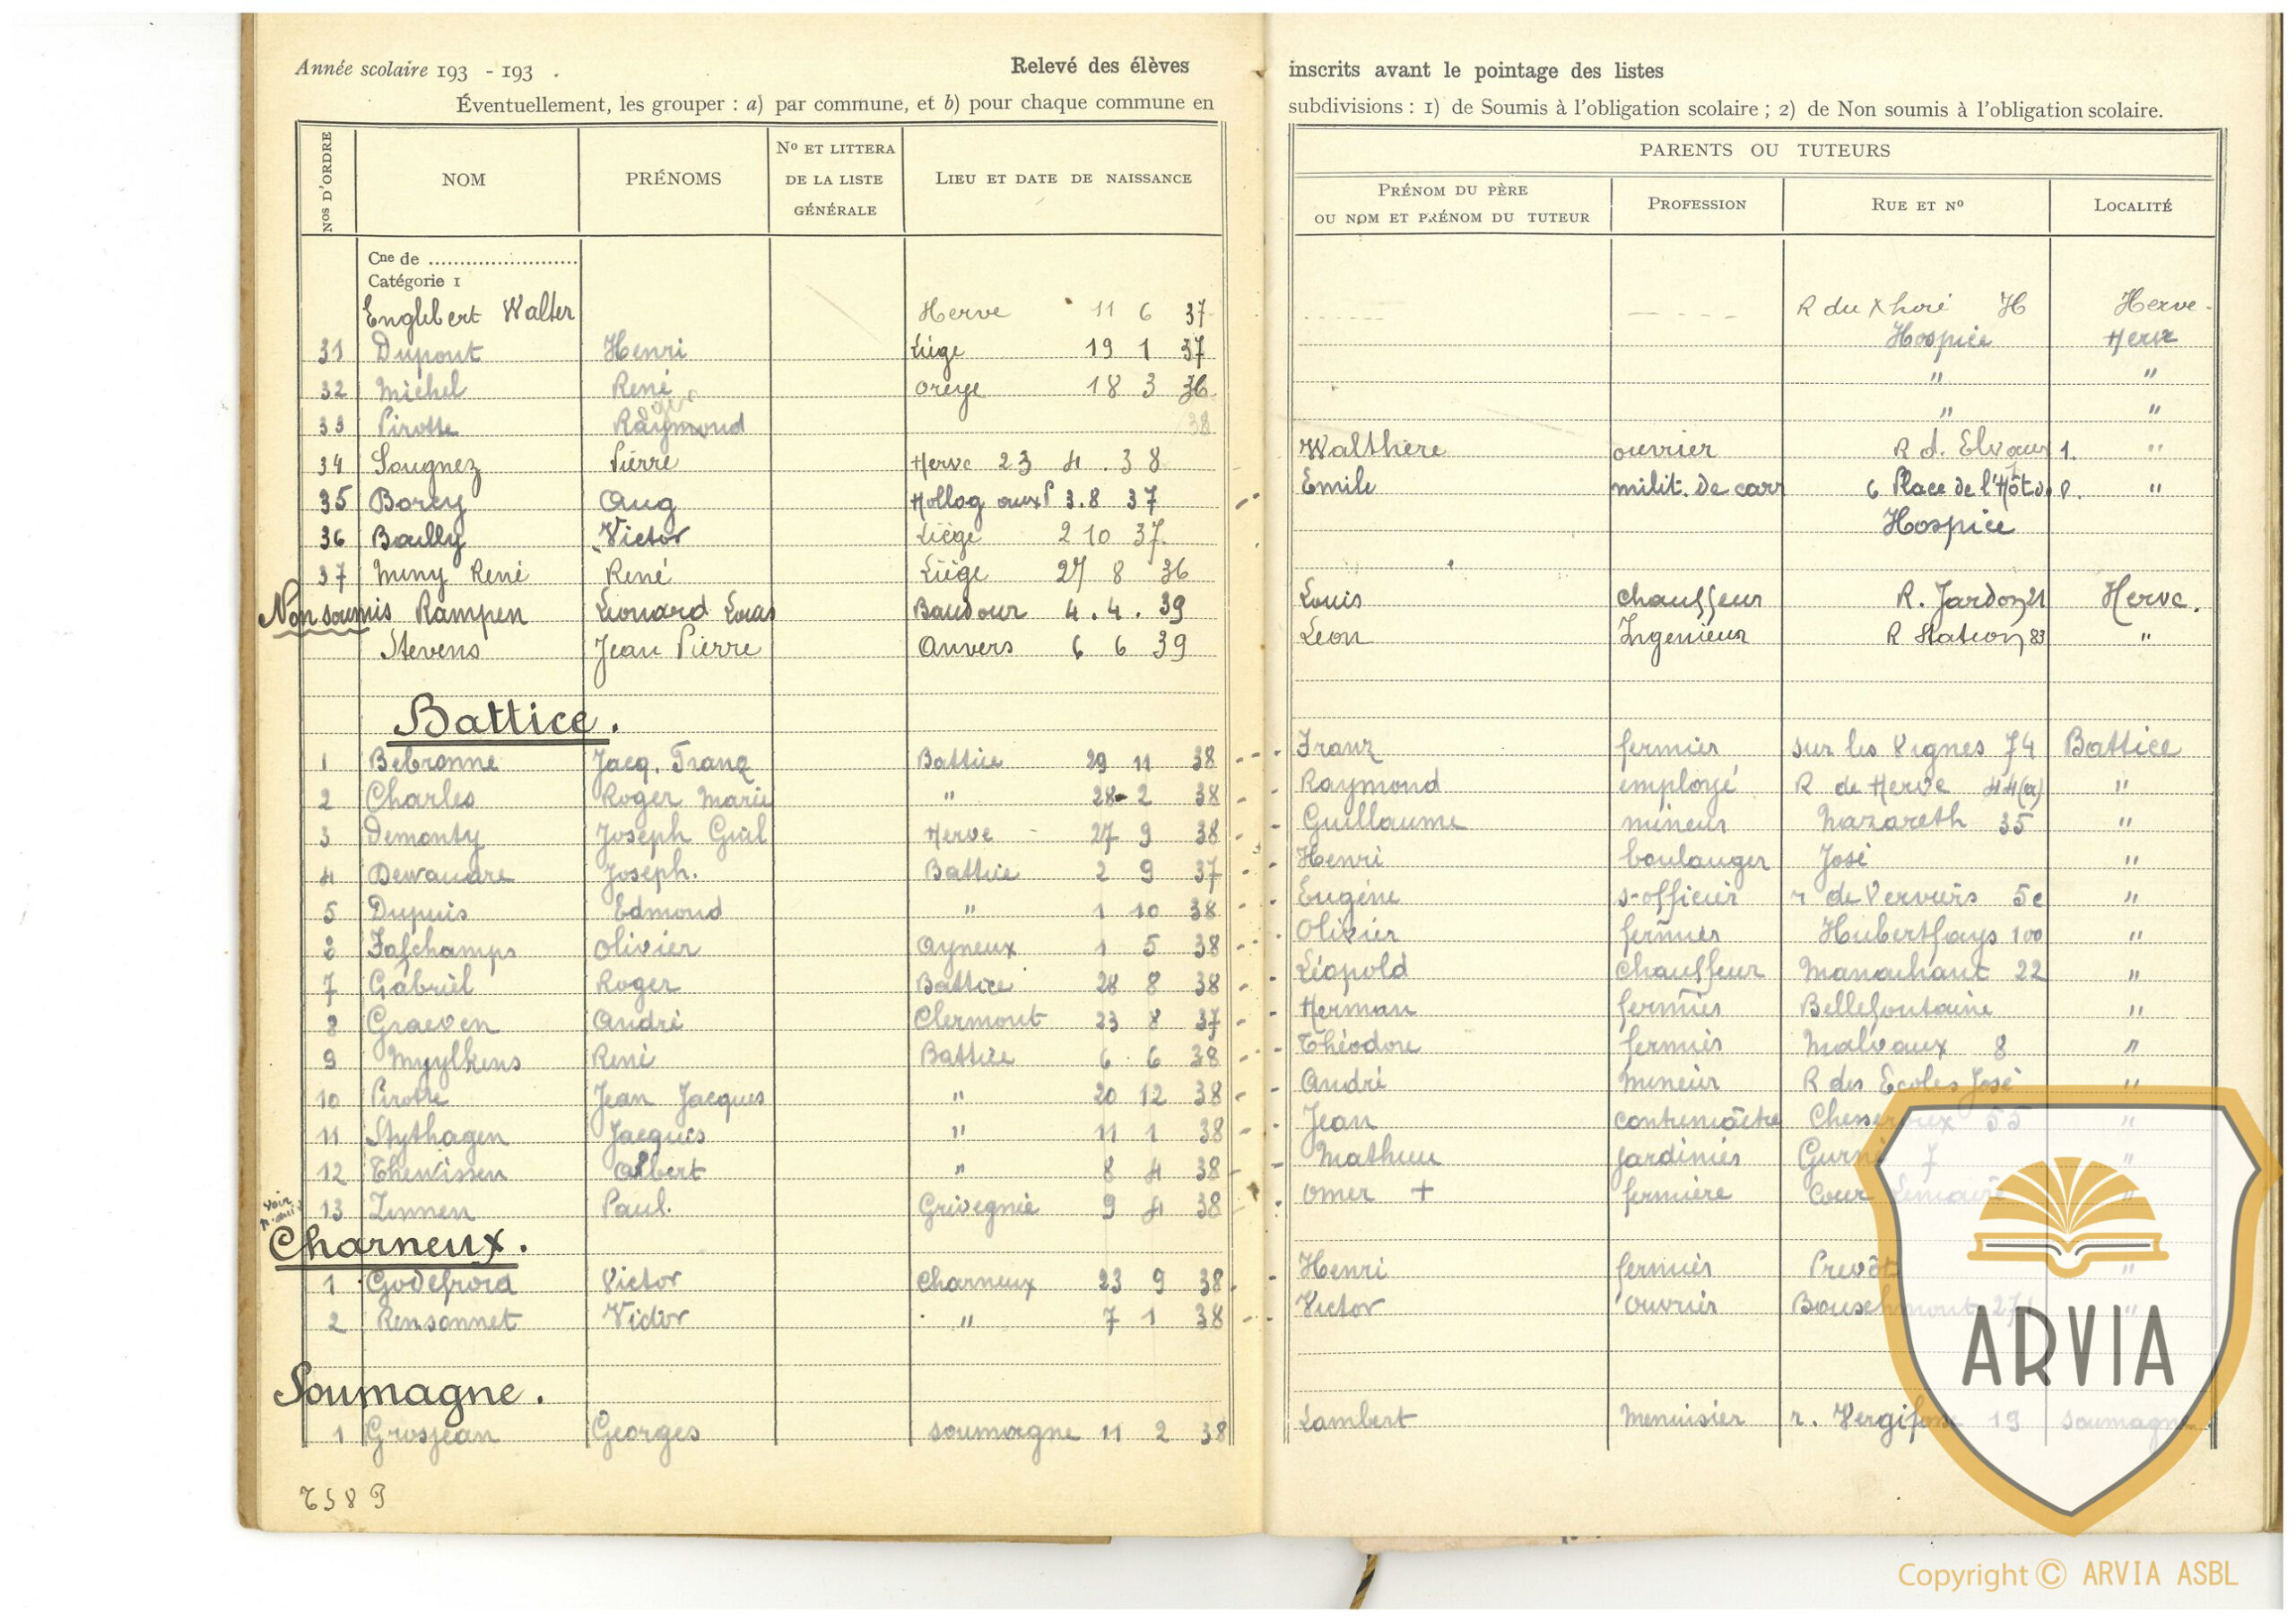 Année scolaire 193 - 193 .
Relevé des élèves inscrits avant le pointage des listes
Éventuellement, les grouper : a) par commune, et b) pour chaque commune en subdivisions : 1) de Soumis à l'obligation scolaire ; 2) de Non soumis à l'obligation scolaire.
PARENTS OU TUTEURS
Nos D'ORDRE NOM PRÉNOMS No ET LITTERA DE LA LISTE GÉNÉRALE LIEU ET DATE DE NAISSANCE PRÉNOM DU PÈRE OU NOM ET PRÉNOM DU TUTEUR PROFESSION RUE ET No LOCALITÉ
Cne de
Catégorie 1
Englebert Walter Herve 11 6 37 R du Xhoré H Herve
31 Dupont Henri Liège 19 1 37 Hospice Herve
32 Michel René Oreye 18 3 36 " "
33 Pirotte Raymond 38 " "
34 Sougnez Pierre Herve 23 4 . 38 Walthère ouvrier R d. Elvaux 1. "
35 Borcy Aug Hollog aux P 3.8 37 Emile milit. de carr 6 Place de l'Hôt. d. "
36 Bailly Victor Liège 2 10 37 Hospice
37 Miny René René Liège 27 8 36
Non soumis Rampen Léonard Louis Baudour 4 . 4 . 39 Louis chauffeur R. Jardon 21 Herve.
Stevens Jean Pierre Anvers 6 6 39 Léon Ingenieur R Station 83 "
Battice.
1 Bebronne Jacq. Franz Battice 29 11 38 Franz fermier sur les Vignes 74 Battice
2 Charles Roger Marie " 28 2 38 Raymond employé R de Herve 44(a) "
3 Demonty Joseph Guil Herve 27 9 38 Guillaume mineur Nazareth 35 "
4 Dewandre Joseph. Battice 2 9 37 Henri boulanger José "
5 Dupuis Edmond " 1 10 38 Eugène s-officier r de Verviers 5c "
Fafchamps Olivier Ayneux 1 5 38 Olivier fermier Hubertfays 100 "
7 Gabriel Roger Battice 28 8 38 Léopold chauffeur Manaihant 22 "
8 Graeven André Clermont 23 8 37 Herman fermier Bellefontaine "
9 Myylkens René Battice 6 6 38 Théodore fermier Malvaux 8 "
10 Pirotte Jean Jacques " 20 12 38 André mineur R des Ecoles José "
11 Stythagen Jacques " 11 1 38 Jean contremaître 55 "
12 Thenissen Albert " 8 4 38 Mathieu jardinier 7 "
voir
13 Zinnen Paul. Grivegnée 9 4 38 Omer + fermière Cour Lemaire "
Charneux.
1 Godefroid Victor Charneux 23 9 38 Henri fermier Prevôt "
2 Rensonnet Victor " 7 1 38 Victor ouvrier "
Soumagne.
1 Grosjean Georges Soumagne 11 2 38 Lambert menuisier r. 19 Soumagne
ARVIA
Copyright © ARVIA ASBL